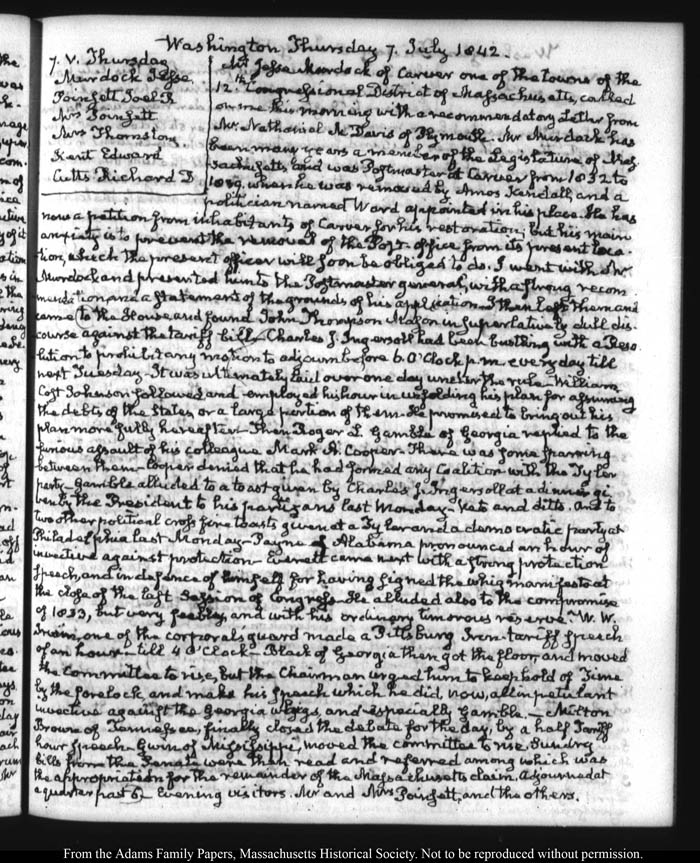 Washington Thursday 7. July 1842.
7. V. Thursday
Murdock Jesse
Poinsett Joel R
Mrs Poinsett
Mrs Thornston
Kent Edward
Cutts Richard D
Mr Jesse Murdock of Carver one of the towns of the
12th Congressional District of Massachusetts, called
on me this morning with a recommendatory Letter from
Mr Nathaniel M. Davis of Plymouth. Mr Murdock has
been many years a member of the Legislature of Mas-
sachusetts, and was Postmaster at Carver from 1832 to
1839, when he was removed by Amos Kendall, and a
politician named Ward appointed in his place. He has
now a petition from inhabitants of Carver for his restoration; but his main
anxiety is to prevent the removal of the Post-office from its present loca-
tion, which the present officer will soon be obliged to do. I went with Mr
Murdock and presented him to the Postmaster general, with a strong recom
mendation, and a statement of the grounds of his application. I then left them and
came to the House, and found John Thompson Mason in superlatively dull dis-
course against the tariff bill. Charles J. Ingersoll had been bustling with a Reso
lution to prohibit any motion to adjourn before 6. O'Clock p.m. every day till
next Tuesday. It was ultimately laid over one day under the rule. William
Cost Johnson followed and employed his hour in unfolding his plan for assuming
the debts of the States, or a large portion of them. He promised to bring out his
plan more fully hereafter. Then Roger L. Gamble of Georgia replied to the
furious assault of his colleague Mark A. Cooper. There was some sparring
between them. Cooper denied that he had formed any Coalition with the Tyler
party. Gamble alluded to a toast given by Charles J. Ingersoll at a dinner gi-
ven by the President to his partizans last Monday. and ditto. And to
two other political cross fire toasts given at a Tyler and a democratic party at
Philadelphia last Monday. Payne of Alabama pronounced an hour of
invective against protection. Everett came next with a strong protection
Speech, and in defence of himself for having signed the whig manifesto at
the close of the last Session of Congress. He alluded also to the compromise
of 1833, but very feebly, and with his ordinary timorous reserve. W. W.
Irwin, one of the corporals guard made a Pittsburg Iron-tariff Speech
of an hour till 4 O'Clock. Black of Georgia then got the floor, and moved
the Committee to rise, but the Chairman urged him to keep hold of Time
by the forelock, and make his Speech which he did, now, all in petulant
invective against the Georgia Whigs, and especially Gamble. Milton
Brown of Tennessee, finally closed the debate for the day, by a half Tariff
hour Speech. Gwin of Mississippi, moved the committee to rise. Sundry
bills from the Senate were then read and referred among which was
the appropriation for the remainder of the Massachusetts claim. Adjourned at
a quarter past 6. Evening visitors. Mr and Mrs Poinsett, and the others.
From the Adams Family Papers, Massachusetts Historical Society. Not to be reproduced without permission.